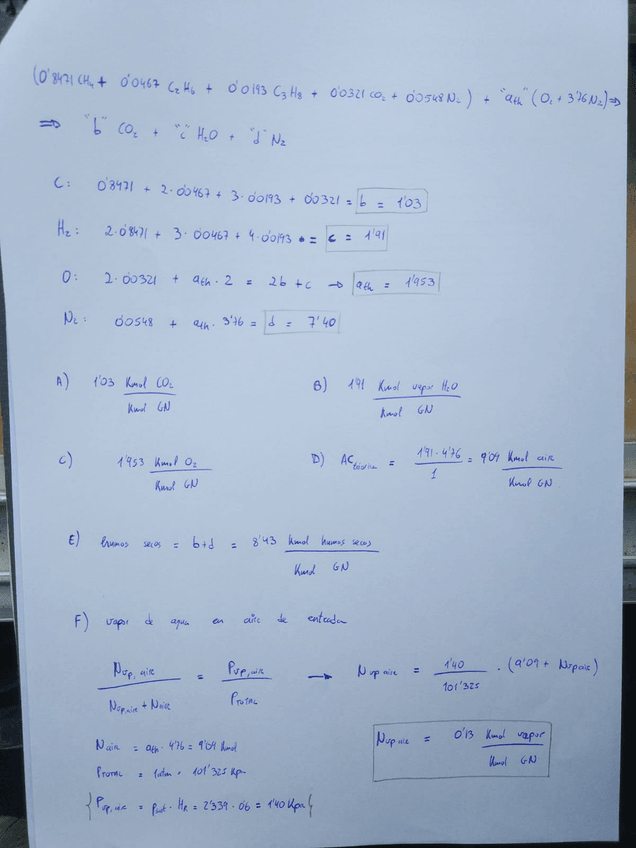 (0'8471 CH4 + 0'0467 C2H6 + 0'0193 C3H8 + 0'0321 CO2 + 0'0548 N2) + "ath" (O2 + 3'76 N2) ⇒
⇒ "b" CO2 + "c" H2O + "d" N2
C: 0'8471 + 2·0'0467 + 3·0'0193 + 0'0321 = b = 1'03
H2: 2·0'8471 + 3·0'0467 + 4·0'0193 = c = 1'91
O: 2·0'0321 + ath·2 = 2b + c → ath = 1'953
N2: 0'0548 + ath·3'76 = d = 7'40
A) 1'03 Kmol CO2 / Kmol GN
B) 1'91 Kmol vapor H2O / Kmol GN
C) 1'953 Kmol O2 / Kmol GN
D) ACteórica = 1'91·4'76 / 1 = 9'09 Kmol aire / Kmol GN
E) humos secos = b+d = 8'43 Kmol humos secos / Kmol GN
F) vapor de agua en aire de entrada
Nvp,aire / Nvp,aire + Naire = Pvp,aire / PTOTAL → Nvp aire = 1'40 / 101'325 · (9'09 + Nvp aire)
Naire = ath·4'76 = 9'09 Kmol
PTOTAL = 1atm = 101'325 Kpa
Nvp aire = 0'13 Kmol vapor / Kmol GN
{Pvp,aire = psat · HR = 2'339 · 0'6 = 1'40 Kpa}